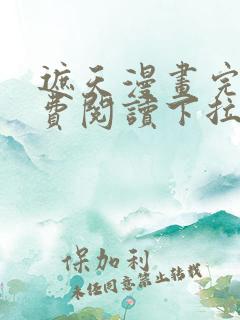 遮天漫畫完
費閱讀下拉
保加利
未经同意禁止转载